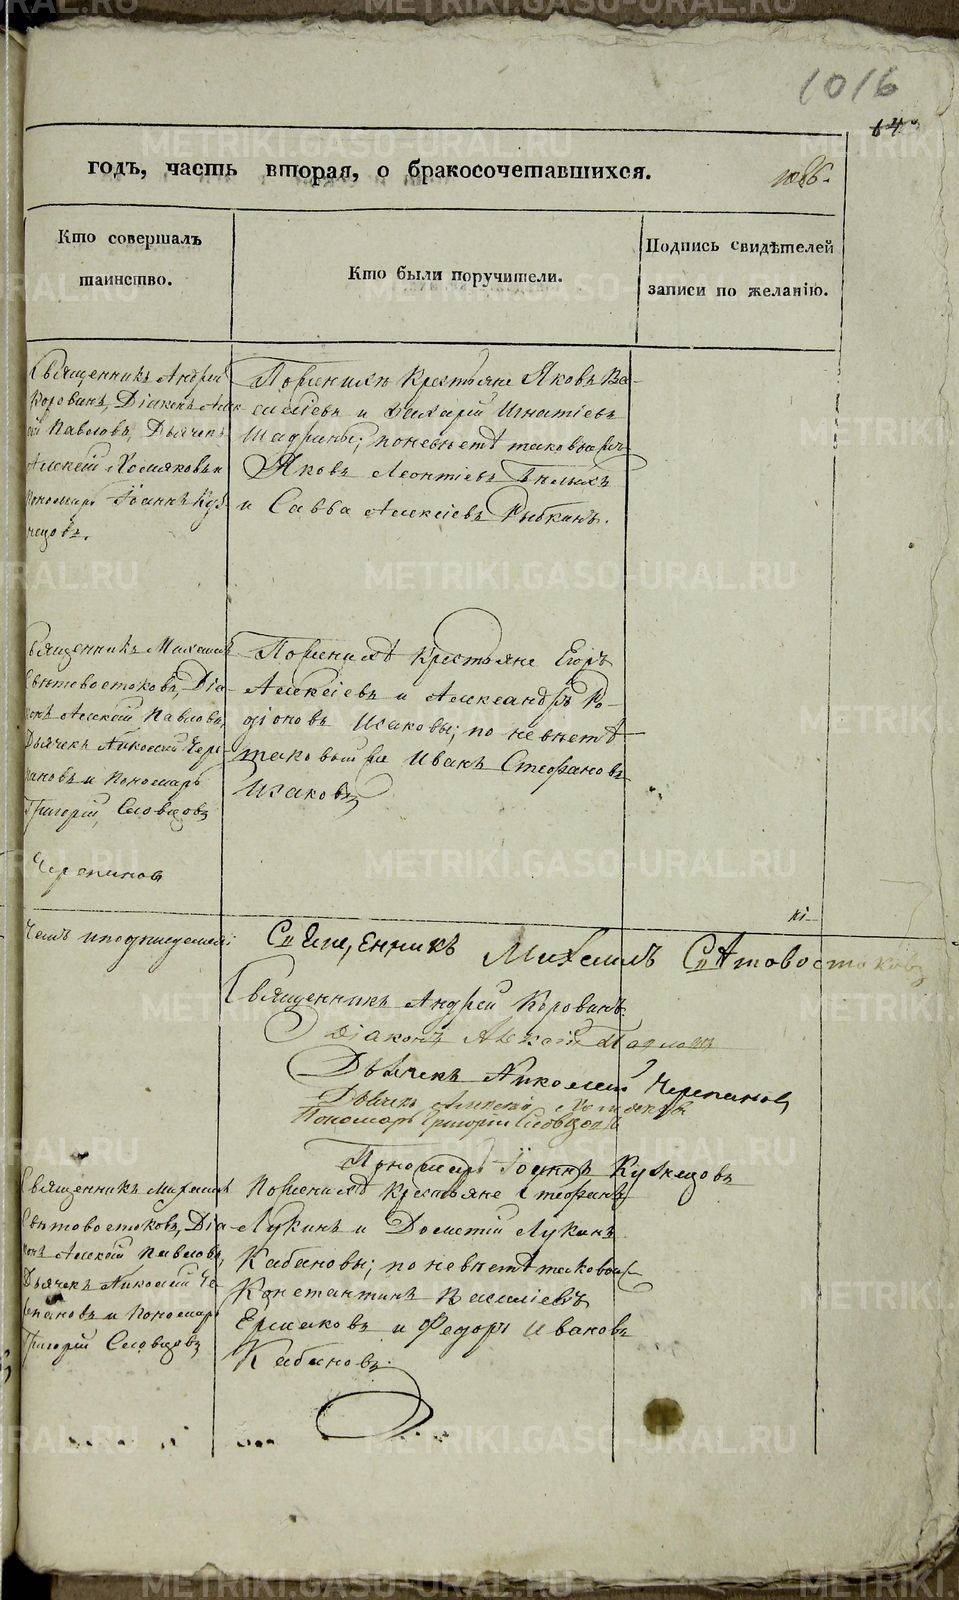 1016
64
годъ, часть вторая, о бракосочетавшихся.
Кто совершалъ
таинство.
Кто были поручители.
Подпись свидѣтелей
записи по желанію.
Священникъ Андрей
Коровинъ, Діаконъ Алек-
сѣй Павловъ, Дьячекъ
Алексѣй Хомяковъ и
Пономарь Іоаннъ Куз-
нецовъ.
По женихѣ Крестьяне Яковъ Ва-
силіевъ и Захарій Игнатіевъ
Шадрины; по невѣстѣ таковые же
Яковъ Леонтіевъ Бѣлыхъ
и Савва Алексіевъ Рыбкинъ.
Священникъ Михаилъ
Свѣтовостоковъ, Діа-
конъ Алексѣй Павловъ,
Дьячекъ Николай Чере-
пановъ и Пономарь
Григорій Словцовъ
По женихѣ Крестьяне Егоръ
Алексіевъ и Александръ Ро-
діоновъ Исаковы; по невѣстѣ
таковый же Иванъ Стефановъ
Исаковъ
Черепановъ
Священникъ Михаилъ Свѣтовостоковъ
Священникъ Андрей Коровинъ
Діаконъ Алексѣй Павловъ
Дьячекъ Николай Черепановъ
Дьячекъ Алексѣй Хомяковъ
Пономарь Григорій Словцовъ
Пономарь Іоаннъ Кузнецовъ
Священникъ Михаилъ
Свѣтовостоковъ, Діа-
конъ Алексѣй Павловъ,
Дьячекъ Николай Че-
репановъ и Пономарь
Григорій Словцовъ
По женихѣ Крестьяне Стефанъ
Лукинъ и Дометій Лукинъ
Кабановы; по невѣстѣ таковые же
Константинъ Василіевъ
Ермаковъ и Федоръ Ивановъ
Кабановъ.
METRIKI.GASO-URAL.RU